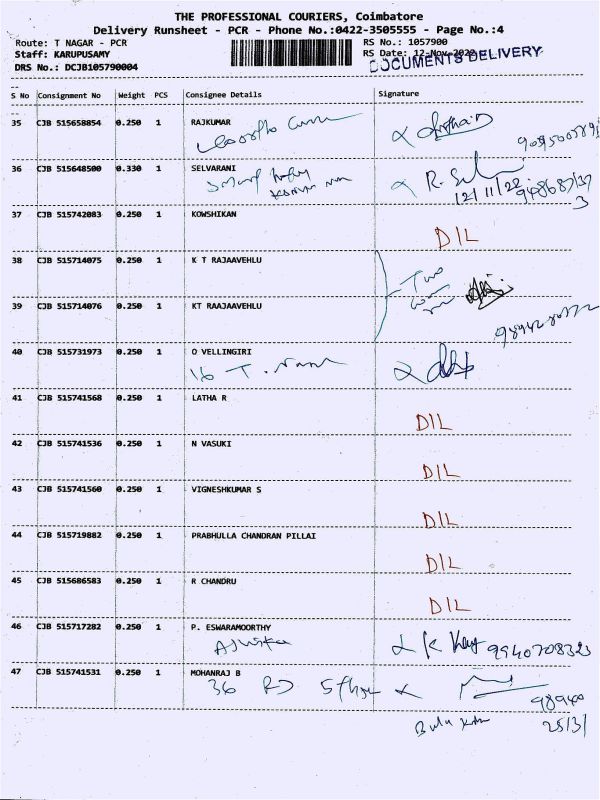 THE PROFESSIONAL COURIERS, Coimbatore
Delivery Runsheet - PCR - Phone No.:0422-3505555 - Page No.:4
Route: T NAGAR - PCR
RS No.: 1057900
Staff: KARUPUSAMY
RS Date: 12-Nov-2022
DOCUMENTS DELIVERY
DRS No.: DCJB105790004
S No Consignment No Weight PCS Consignee Details Signature
35 CJB 515658854 0.250 1 RAJKUMAR
36 CJB 515648500 0.330 1 SELVARANI
12/11/22
37 CJB 515742083 0.250 1 KOWSHIKAN
D/L
38 CJB 515714075 0.250 1 K T RAJAAVEHLU
Two
39 CJB 515714076 0.250 1 KT RAAJAAVEHLU
40 CJB 515731973 0.250 1 O VELLINGIRI
16 T.
41 CJB 515741568 0.250 1 LATHA R
D/L
42 CJB 515741536 0.250 1 N VASUKI
D/L
43 CJB 515741560 0.250 1 VIGNESHKUMAR S
D/L
44 CJB 515719882 0.250 1 PRABHULLA CHANDRAN PILLAI
D/L
45 CJB 515686583 0.250 1 R CHANDRU
D/L
46 CJB 515717282 0.250 1 P. ESWARAMOORTHY
9940708323
47 CJB 515741531 0.250 1 MOHANRAJ B
36
98940
25131